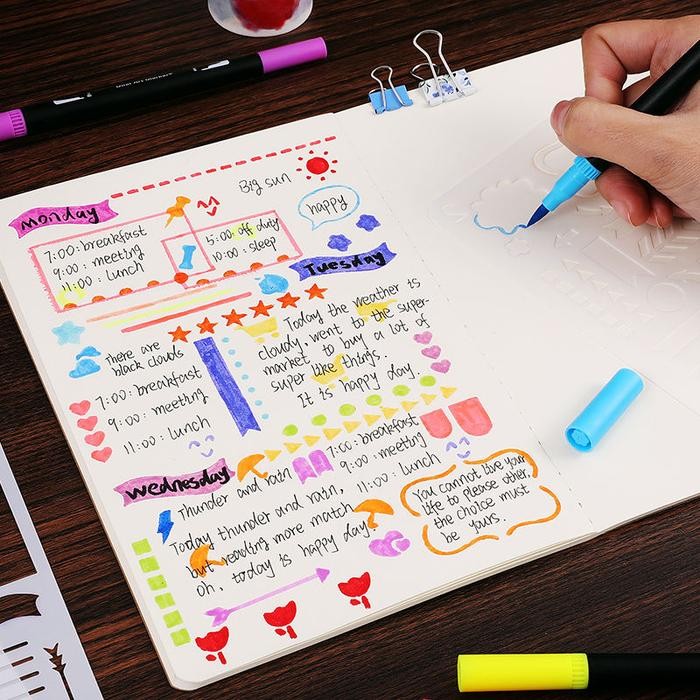 Big sun
monday
happy
7:00: breakfast
9:00: meeting
11:00: Lunch
15:00: off duty
10:00: sleep
Tuesday
There are
black clouds
7:00: breakfast
9:00: meeting
11:00: Lunch
Today the weather is
cloudy, went to the super-
market to buy a lot of
super like things.
It is happy day.
wednesday
Thunder and rain
7:00: breakfast
9:00: meeting
11:00: Lunch
Today thunder and rain,
but reading more match
oh, today is happy day!
You cannot live your
life to please other,
the choice must
be yours.